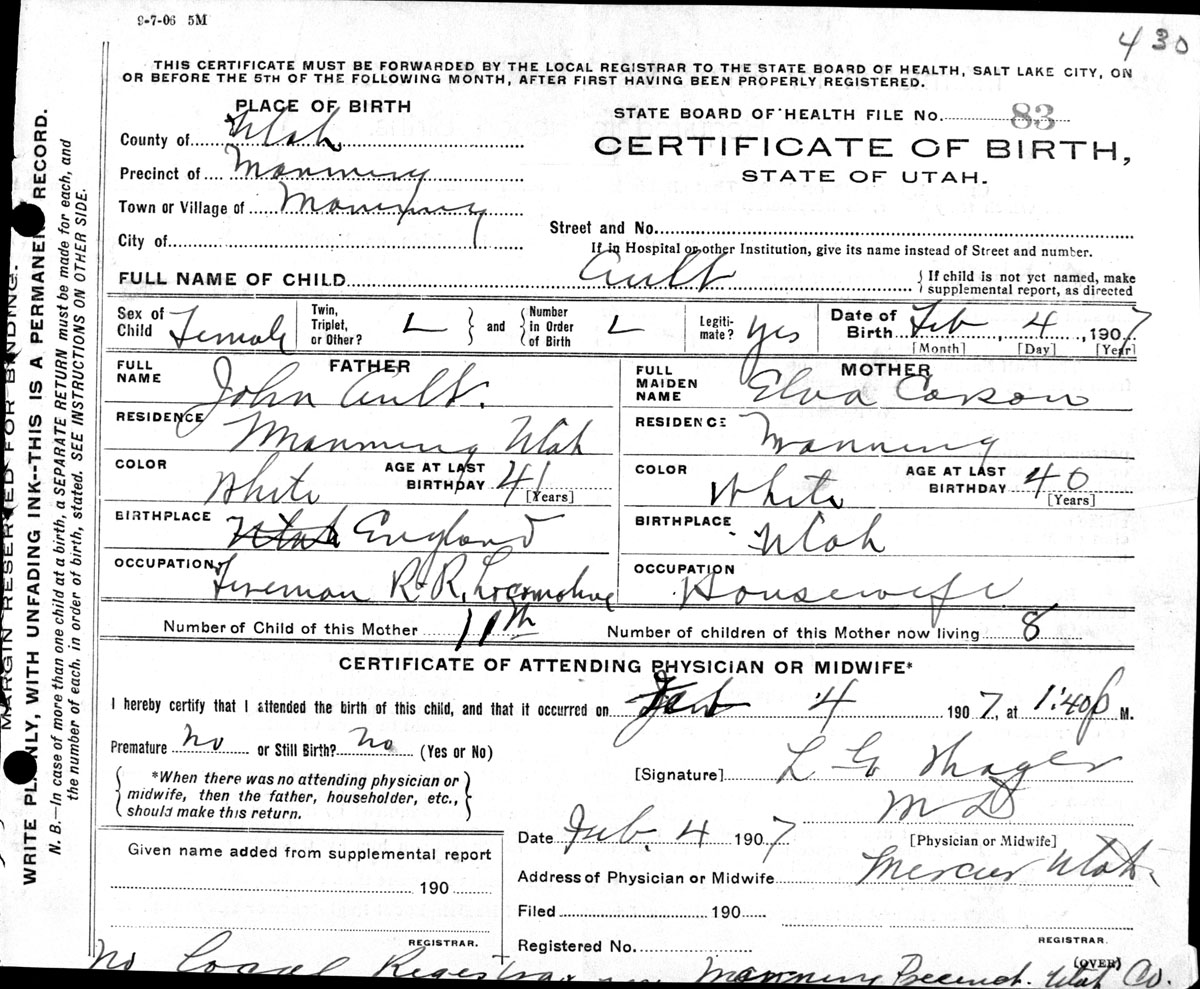 9-7-06 5M
430
THIS CERTIFICATE MUST BE FORWARDED BY THE LOCAL REGISTRAR TO THE STATE BOARD OF HEALTH, SALT LAKE CITY, ON
OR BEFORE THE 5TH OF THE FOLLOWING MONTH, AFTER FIRST HAVING BEEN PROPERLY REGISTERED.
PLACE OF BIRTH
County of Utah
Precinct of Manning
Town or Village of Manning
City of
STATE BOARD OF HEALTH FILE No. 83
CERTIFICATE OF BIRTH,
STATE OF UTAH.
Street and No.
If in Hospital or other Institution, give its name instead of Street and number.
FULL NAME OF CHILD Ault { If child is not yet named, make
supplemental report, as directed
Sex of Child Female
Twin, Triplet, or Other? L } and { Number in Order of Birth L
Legiti- mate? Yes
Date of Birth Feb 4, 1907
[Month] [Day] [Year]
FATHER
FULL NAME John Ault.
RESIDENCE Manning Utah
COLOR White AGE AT LAST BIRTHDAY 41 [Years]
BIRTHPLACE Utah England
OCCUPATION Fireman R-R, Locomotive
MOTHER
FULL MAIDEN NAME Elva Corson
RESIDENCE Manning
COLOR White AGE AT LAST BIRTHDAY 40 [Years]
BIRTHPLACE Utah
OCCUPATION Housewife
Number of Child of this Mother 11th Number of children of this Mother now living 8
CERTIFICATE OF ATTENDING PHYSICIAN OR MIDWIFE*
I hereby certify that I attended the birth of this child, and that it occurred on Feb 4 1907, at 1:40 p M.
Premature No or Still Birth? No (Yes or No)
{ *When there was no attending physician or
midwife, then the father, householder, etc.,
should make this return. }
[Signature] L G
M D
[Physician or Midwife]
Date Feb. 4 1907
Address of Physician or Midwife Mercur Utah
Filed 190
Registered No.
REGISTRAR.
(OVER)
Given name added from supplemental report
190
REGISTRAR.
No Local Registrar Manning Precinct. Utah Co.
MARGIN RESERVED FOR BINDING.
WRITE PLAINLY, WITH UNFADING INK--THIS IS A PERMANENT RECORD.
N. B.—In case of more than one child at a birth, a SEPARATE RETURN must be made for each, and
the number of each, in order of birth, stated. SEE INSTRUCTIONS ON OTHER SIDE.